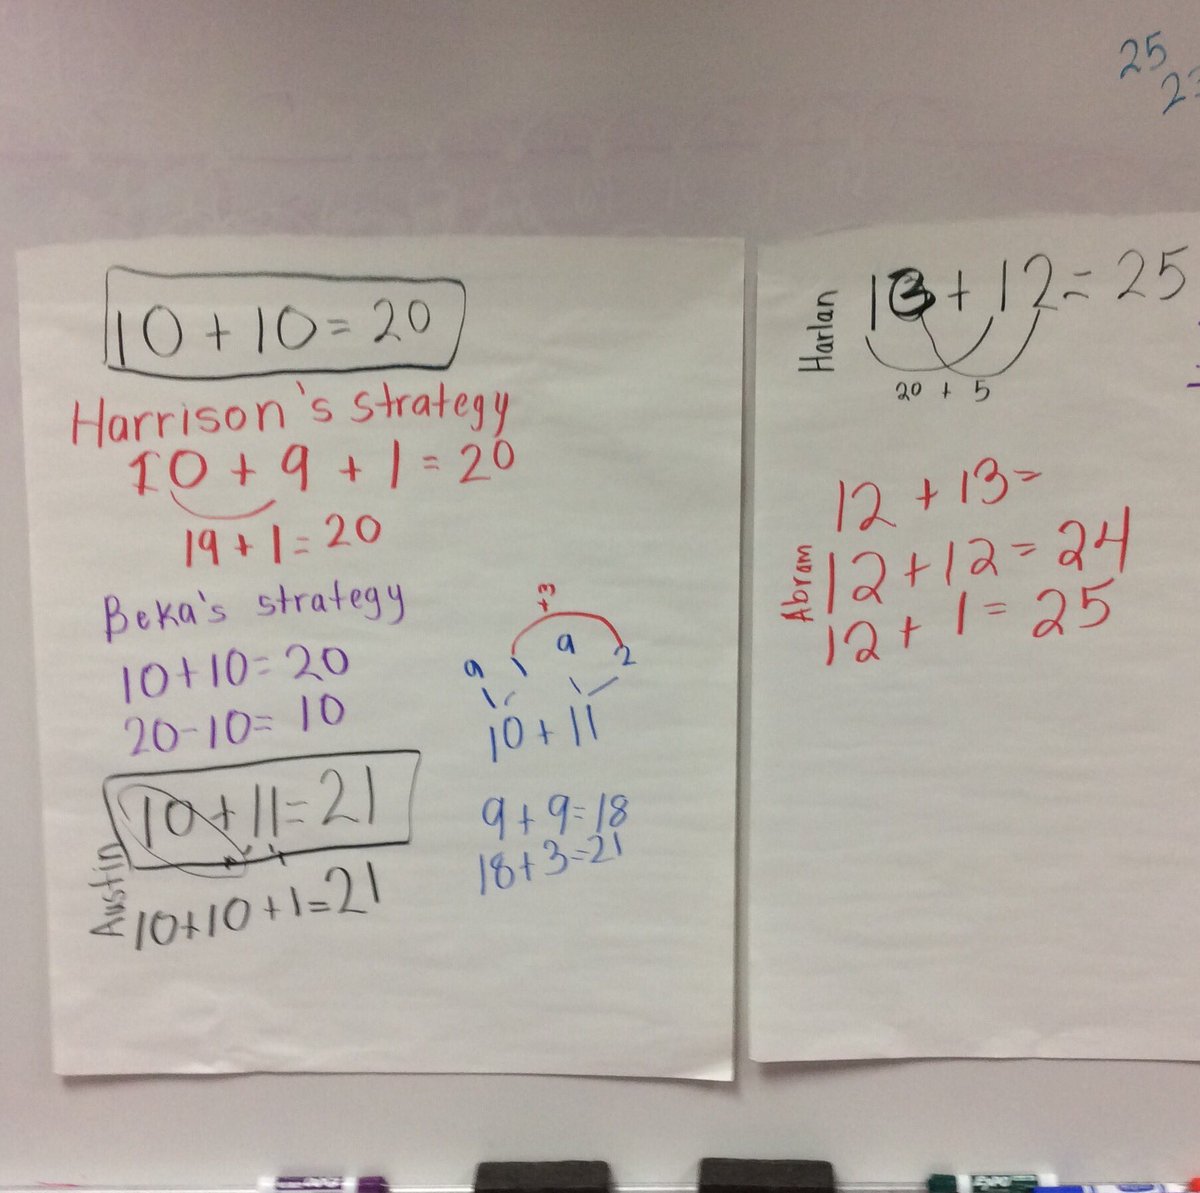 25
10 + 10 = 20
Harrison's strategy
10 + 9 + 1 = 20
19 + 1 = 20
Beka's strategy
10+10=20
20-10=10
10+11=21
Austin
10+10+1=21
+3
9 1 9 2
10+11
9+9=18
18+3=21
Harlan
13+12=25
20 + 5
12 + 13=
Abram
12+12=24
12+ 1=25